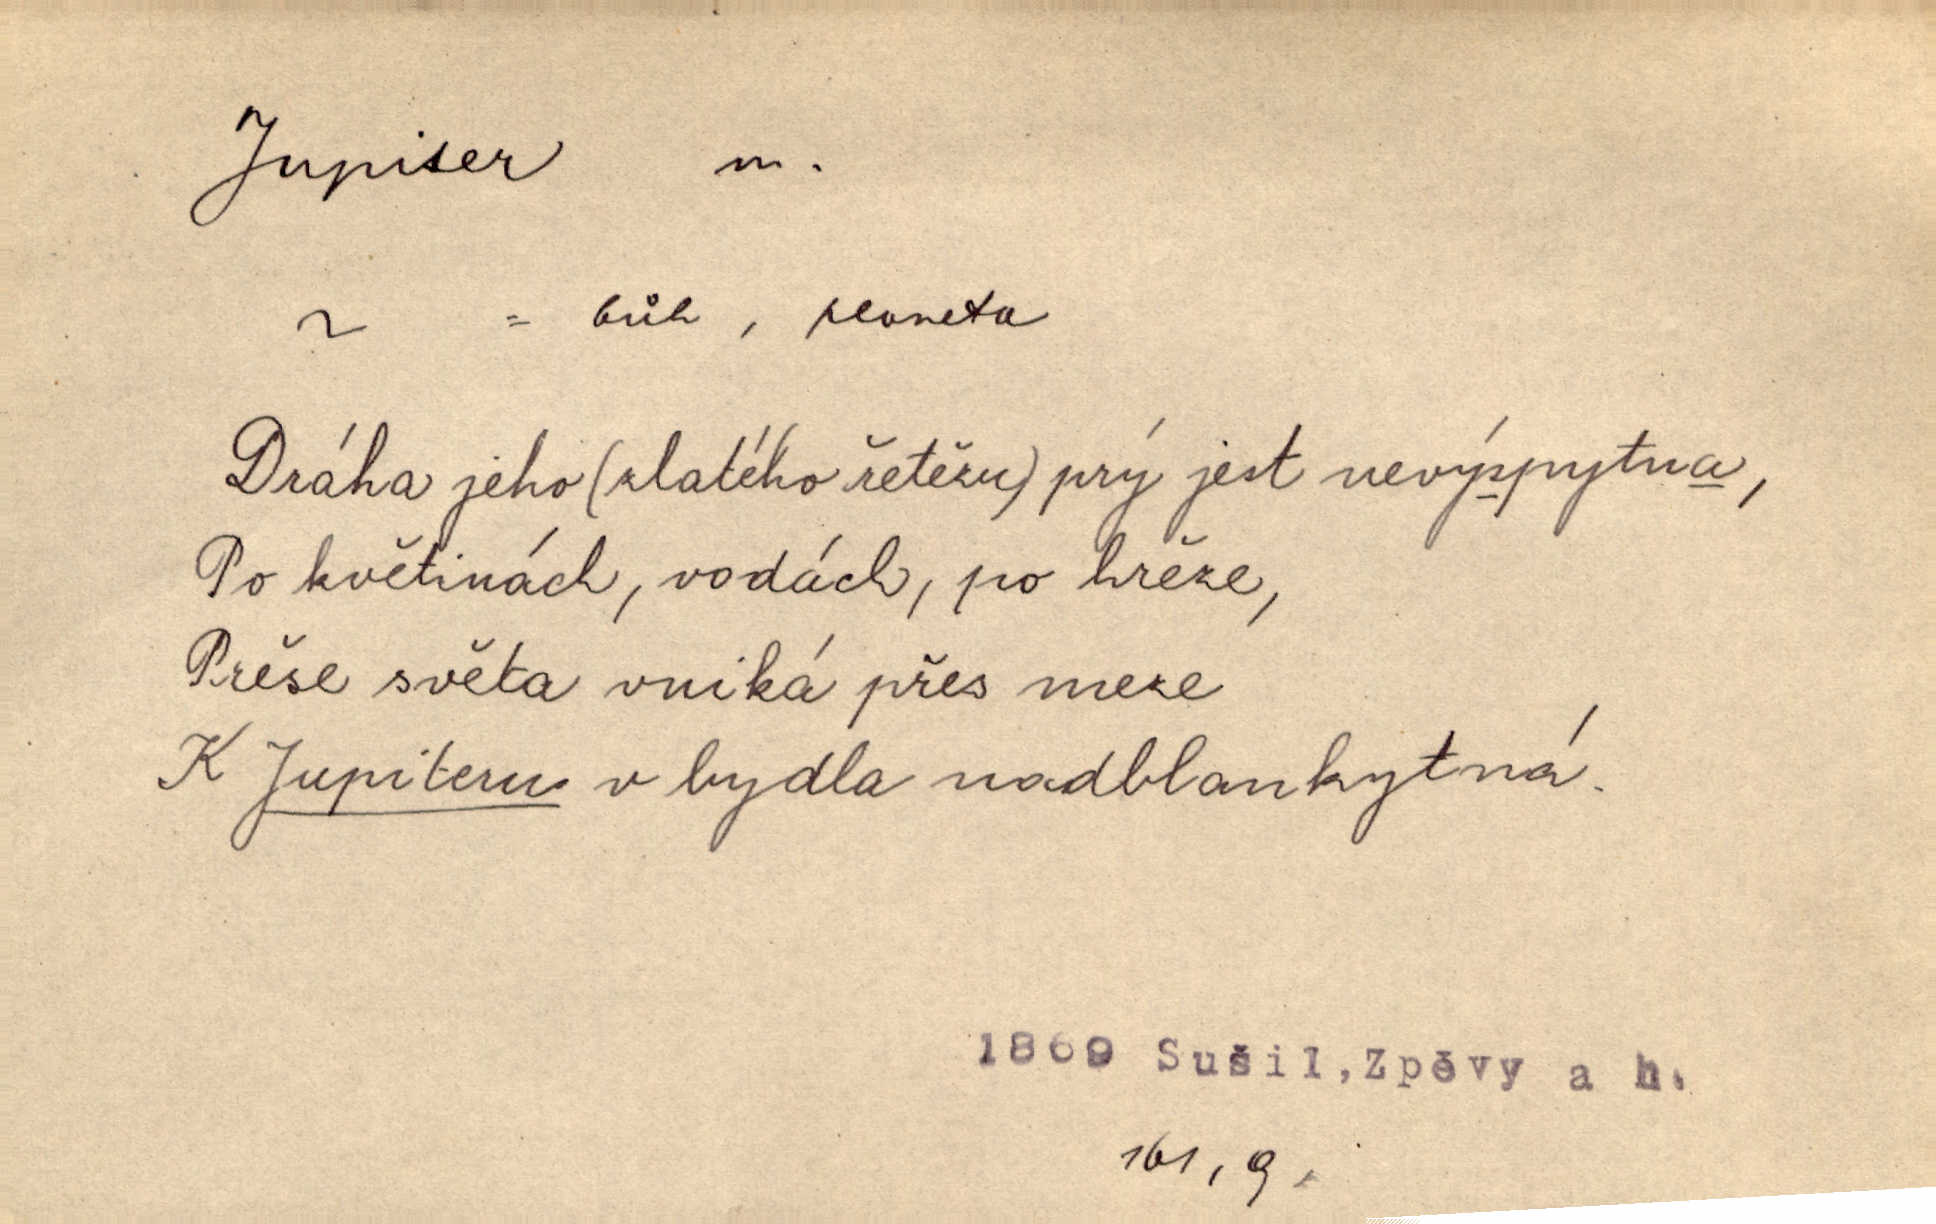 Jupiter m.
~ = bůh, planeta
Dráha jeho (zlatého řetězu) prý jest nevýspytna,
Po květinách, vodách, po hřěze,
Prěse světa vniká přes meze
K Jupiteru v bydla nadblankytná.
1869 Sušil,Zpěvy a h.
161, 9.